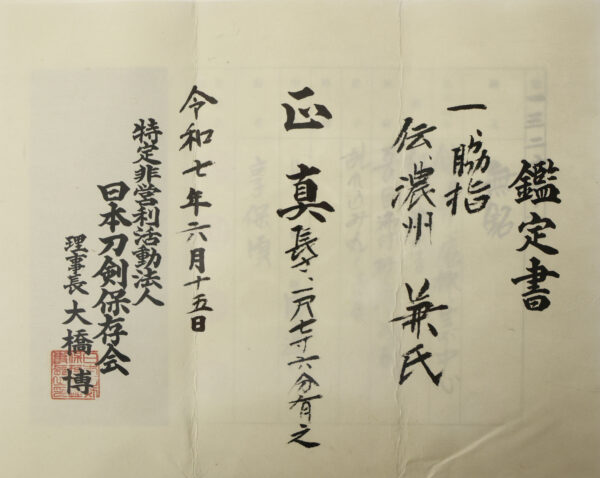 鑑定書
一、脇指
伝、濃州 兼氏
正真 長サ、一尺七寸六分有之
令和七年六月十五日
特定非営利活動法人
日本刀剣保存会
理事長 大橋博